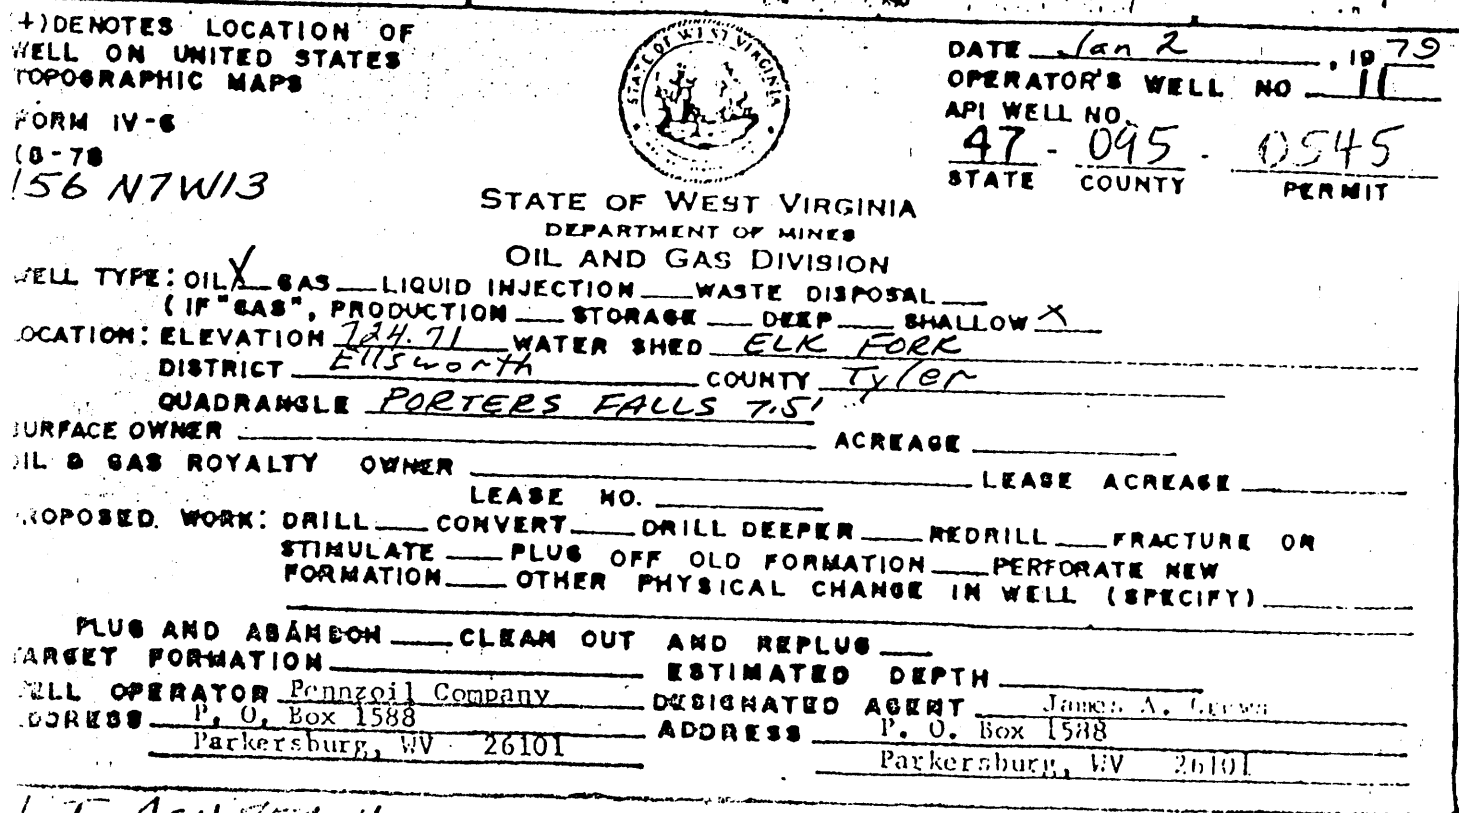 +) DENOTES LOCATION OF
WELL ON UNITED STATES
TOPOGRAPHIC MAPS
FORM IV-6
(8-78
156 N7W13
STATE OF WEST VIRGINIA
DATE Jan 2, 1979
OPERATOR'S WELL NO 11
API WELL NO.
47 - 095 - 0545
STATE COUNTY PERMIT
STATE OF WEST VIRGINIA
DEPARTMENT OF MINES
OIL AND GAS DIVISION
WELL TYPE: OIL X GAS ___ LIQUID INJECTION ___ WASTE DISPOSAL ___
(IF "GAS", PRODUCTION ___ STORAGE ___ DEEP ___ SHALLOW X
LOCATION: ELEVATION 724.71 WATER SHED ELK FORK
DISTRICT Ellsworth COUNTY Tyler
QUADRANGLE PORTERS FALLS 7.5'
SURFACE OWNER ___ ACREAGE ___
OIL & GAS ROYALTY OWNER ___ LEASE ACREAGE ___
LEASE NO. ___
PROPOSED WORK: DRILL ___ CONVERT ___ DRILL DEEPER ___ REDRILL ___ FRACTURE OR
STIMULATE ___ PLUG OFF OLD FORMATION ___ PERFORATE NEW
FORMATION ___ OTHER PHYSICAL CHANGE IN WELL (SPECIFY) ___
PLUG AND ABANDON ___ CLEAN OUT AND REPLUG ___
TARGET FORMATION ___ ESTIMATED DEPTH ___
WELL OPERATOR Pennzoil Company DESIGNATED AGENT James A. Crews
ADDRESS P. O. Box 1588 ADDRESS P. O. Box 1588
Parkersburg, WV 26101 Parkersburg, WV 26101